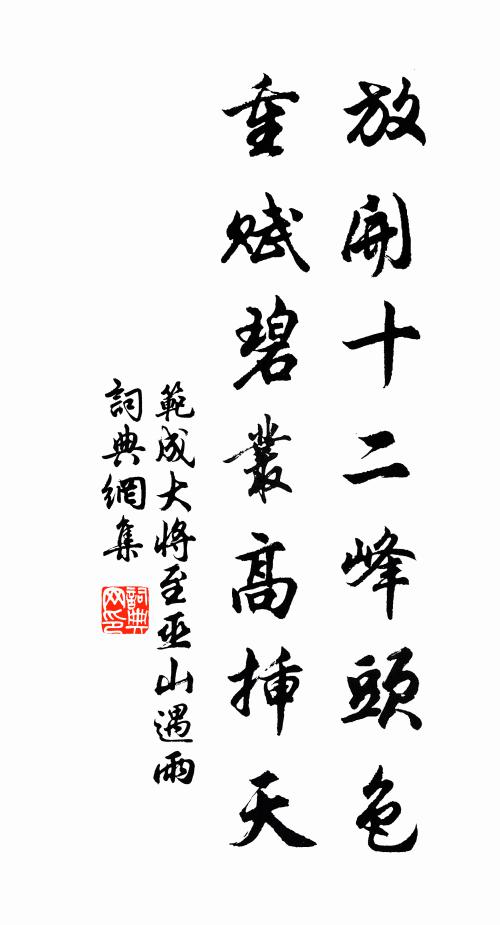 放開十二峰頭色
重賦碧叢高插天
範成大將至巫山遇雨
詞典網集
詞典网印